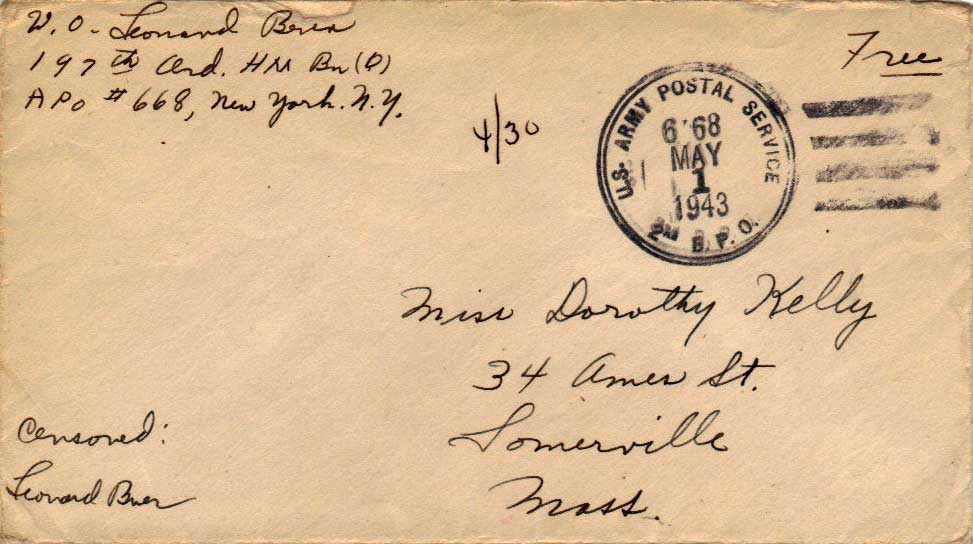 W.O. Leonard
197th Ord. HM Bn (Q)
APO #668, New York. N.Y.
Free
4/30
U.S. ARMY POSTAL SERVICE
6 68
MAY
1
1943
2ND B.P.O.
Miss Dorothy Kelly
34 Ames St.
Somerville
Mass.
Censored:
Leonard